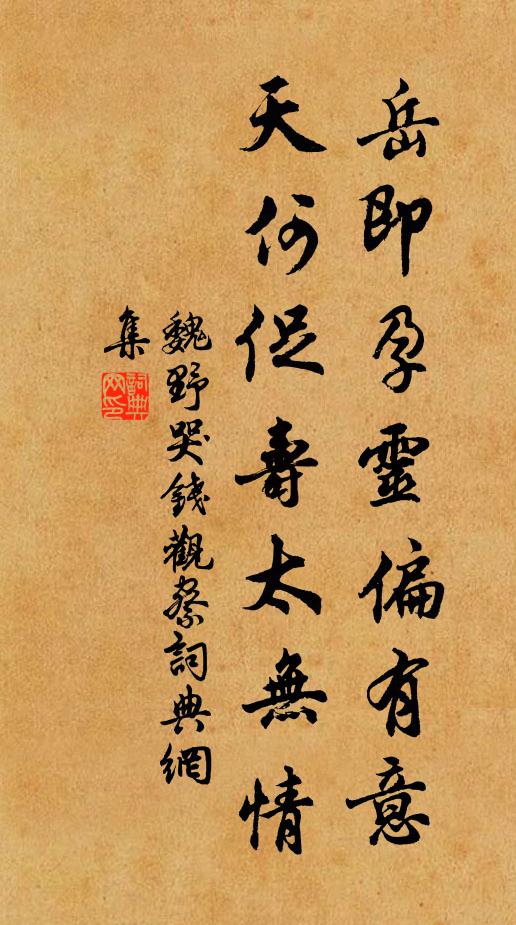 岳即孕靈偏有意
天何促壽太無情
魏野哭錢觀察詞典網
集
詞典網印